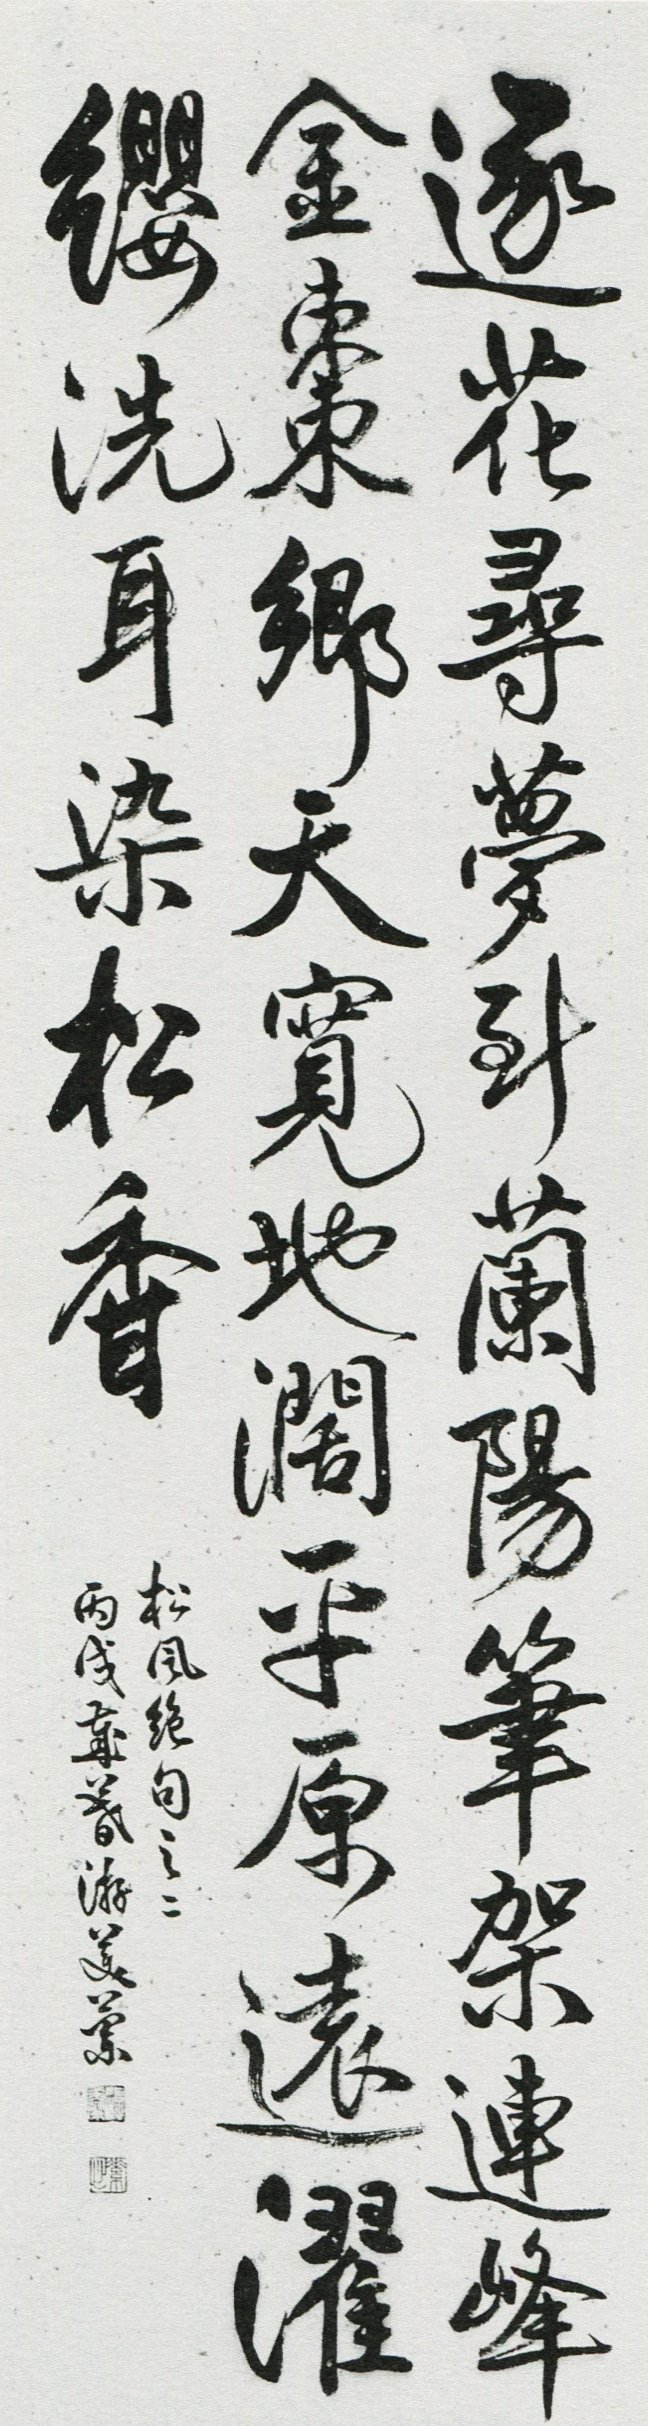 逐花尋夢到蘭陽筆架連峰
金棗鄉天寬地濶平原遠濯
纓洗耳染松香
松風絕句之二
丙戌歲暮游美蘭